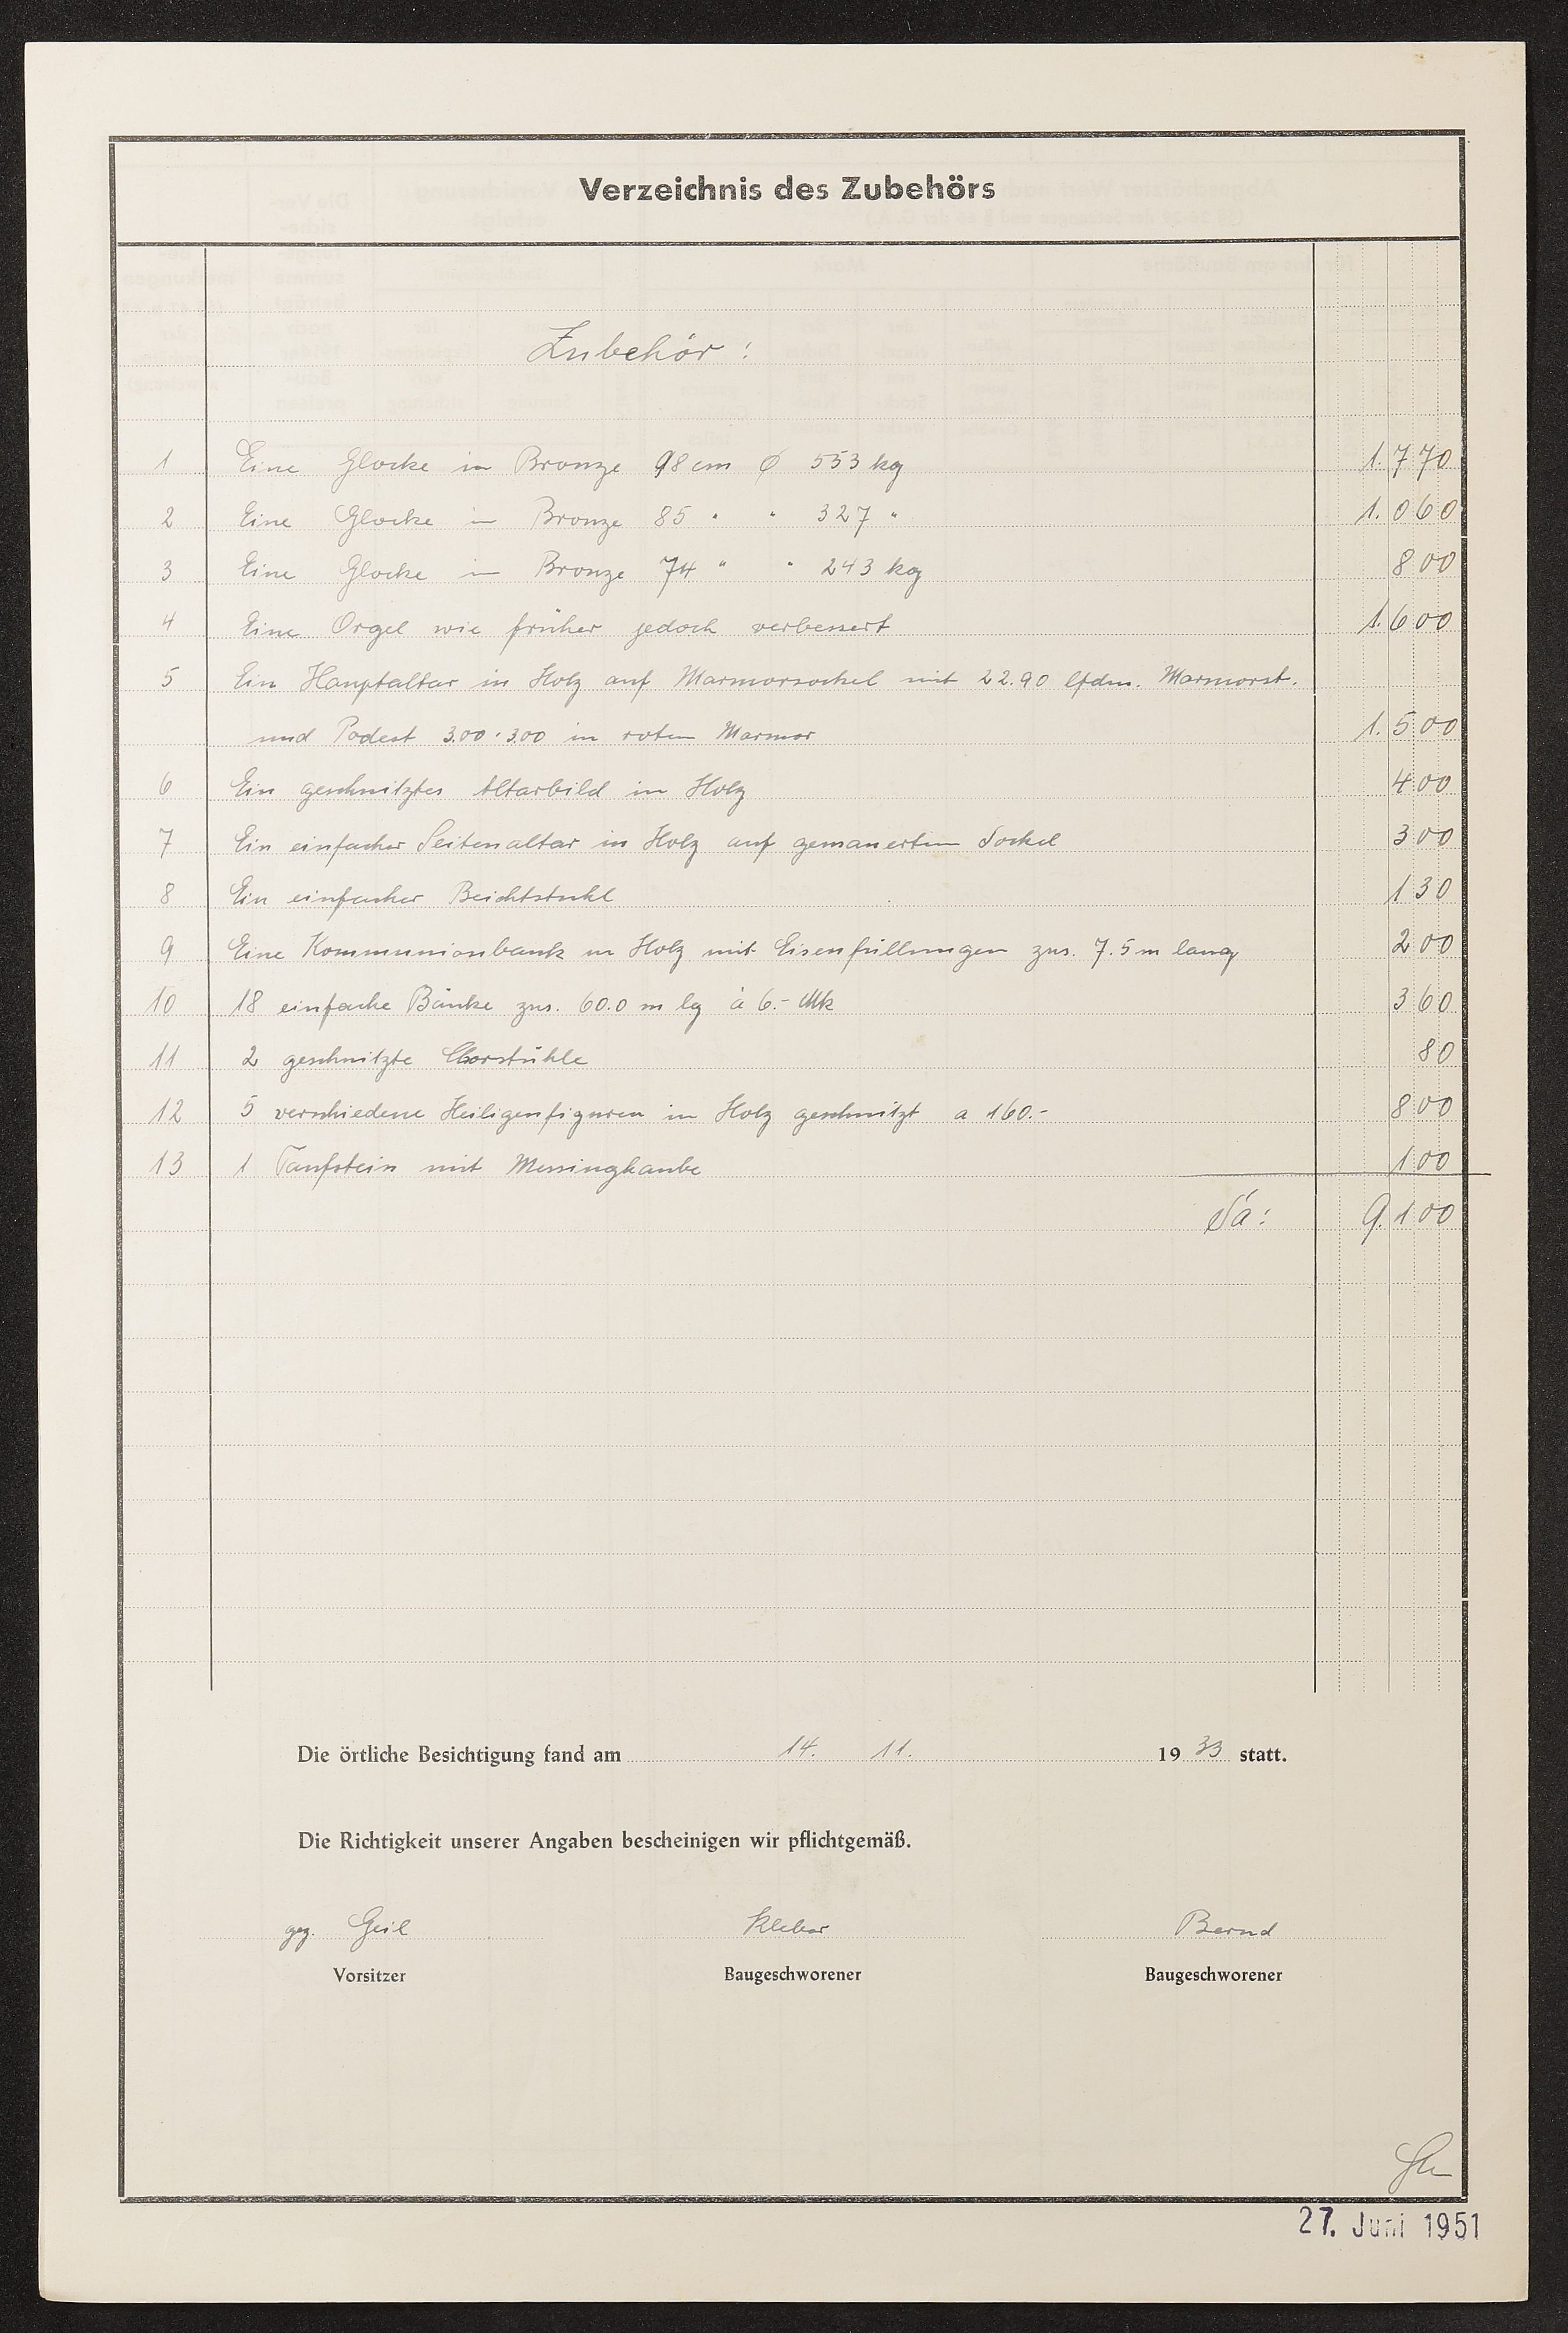 Verzeichnis des Zubehörs
Zubehör:
1 Eine Glocke in Bronze 98 cm Ø 553 kg 1.770
2 Eine Glocke in Bronze 85 " " 327 " 1.060
3 Eine Glocke in Bronze 74 " " 243 kg 800
4 Eine Orgel wie früher jedoch verbessert 1.600
5 Ein Hauptaltar in Holz auf Marmorsockel mit 22.90 lfdm. Marmorst.
und Podest 3.00 · 3.00 in rotem Marmor 1.500
6 Ein geschnitztes Altarbild in Holz 400
7 Ein einfacher Seitenaltar in Holz auf gemauertem Sockel 300
8 Ein einfacher Beichtstuhl 130
9 Eine Kommunionbank in Holz mit Eisenfüllungen zus. 7.5 m lang 200
10 18 einfache Bänke zus. 60.0 m lg à 6.- Mk 360
11 2 geschnitzte Chorstühle 80
12 5 verschiedene Heiligenfiguren in Holz geschnitzt a 160.- 800
13 1 Taufstein mit Messinghaube 100
Sa: 9.100
Die örtliche Besichtigung fand am 14. 11. 19 33 statt.
Die Richtigkeit unserer Angaben bescheinigen wir pflichtgemäß.
gez. Geil Kleber Bernd
Vorsitzer Baugeschworener Baugeschworener
27. Juni 1951